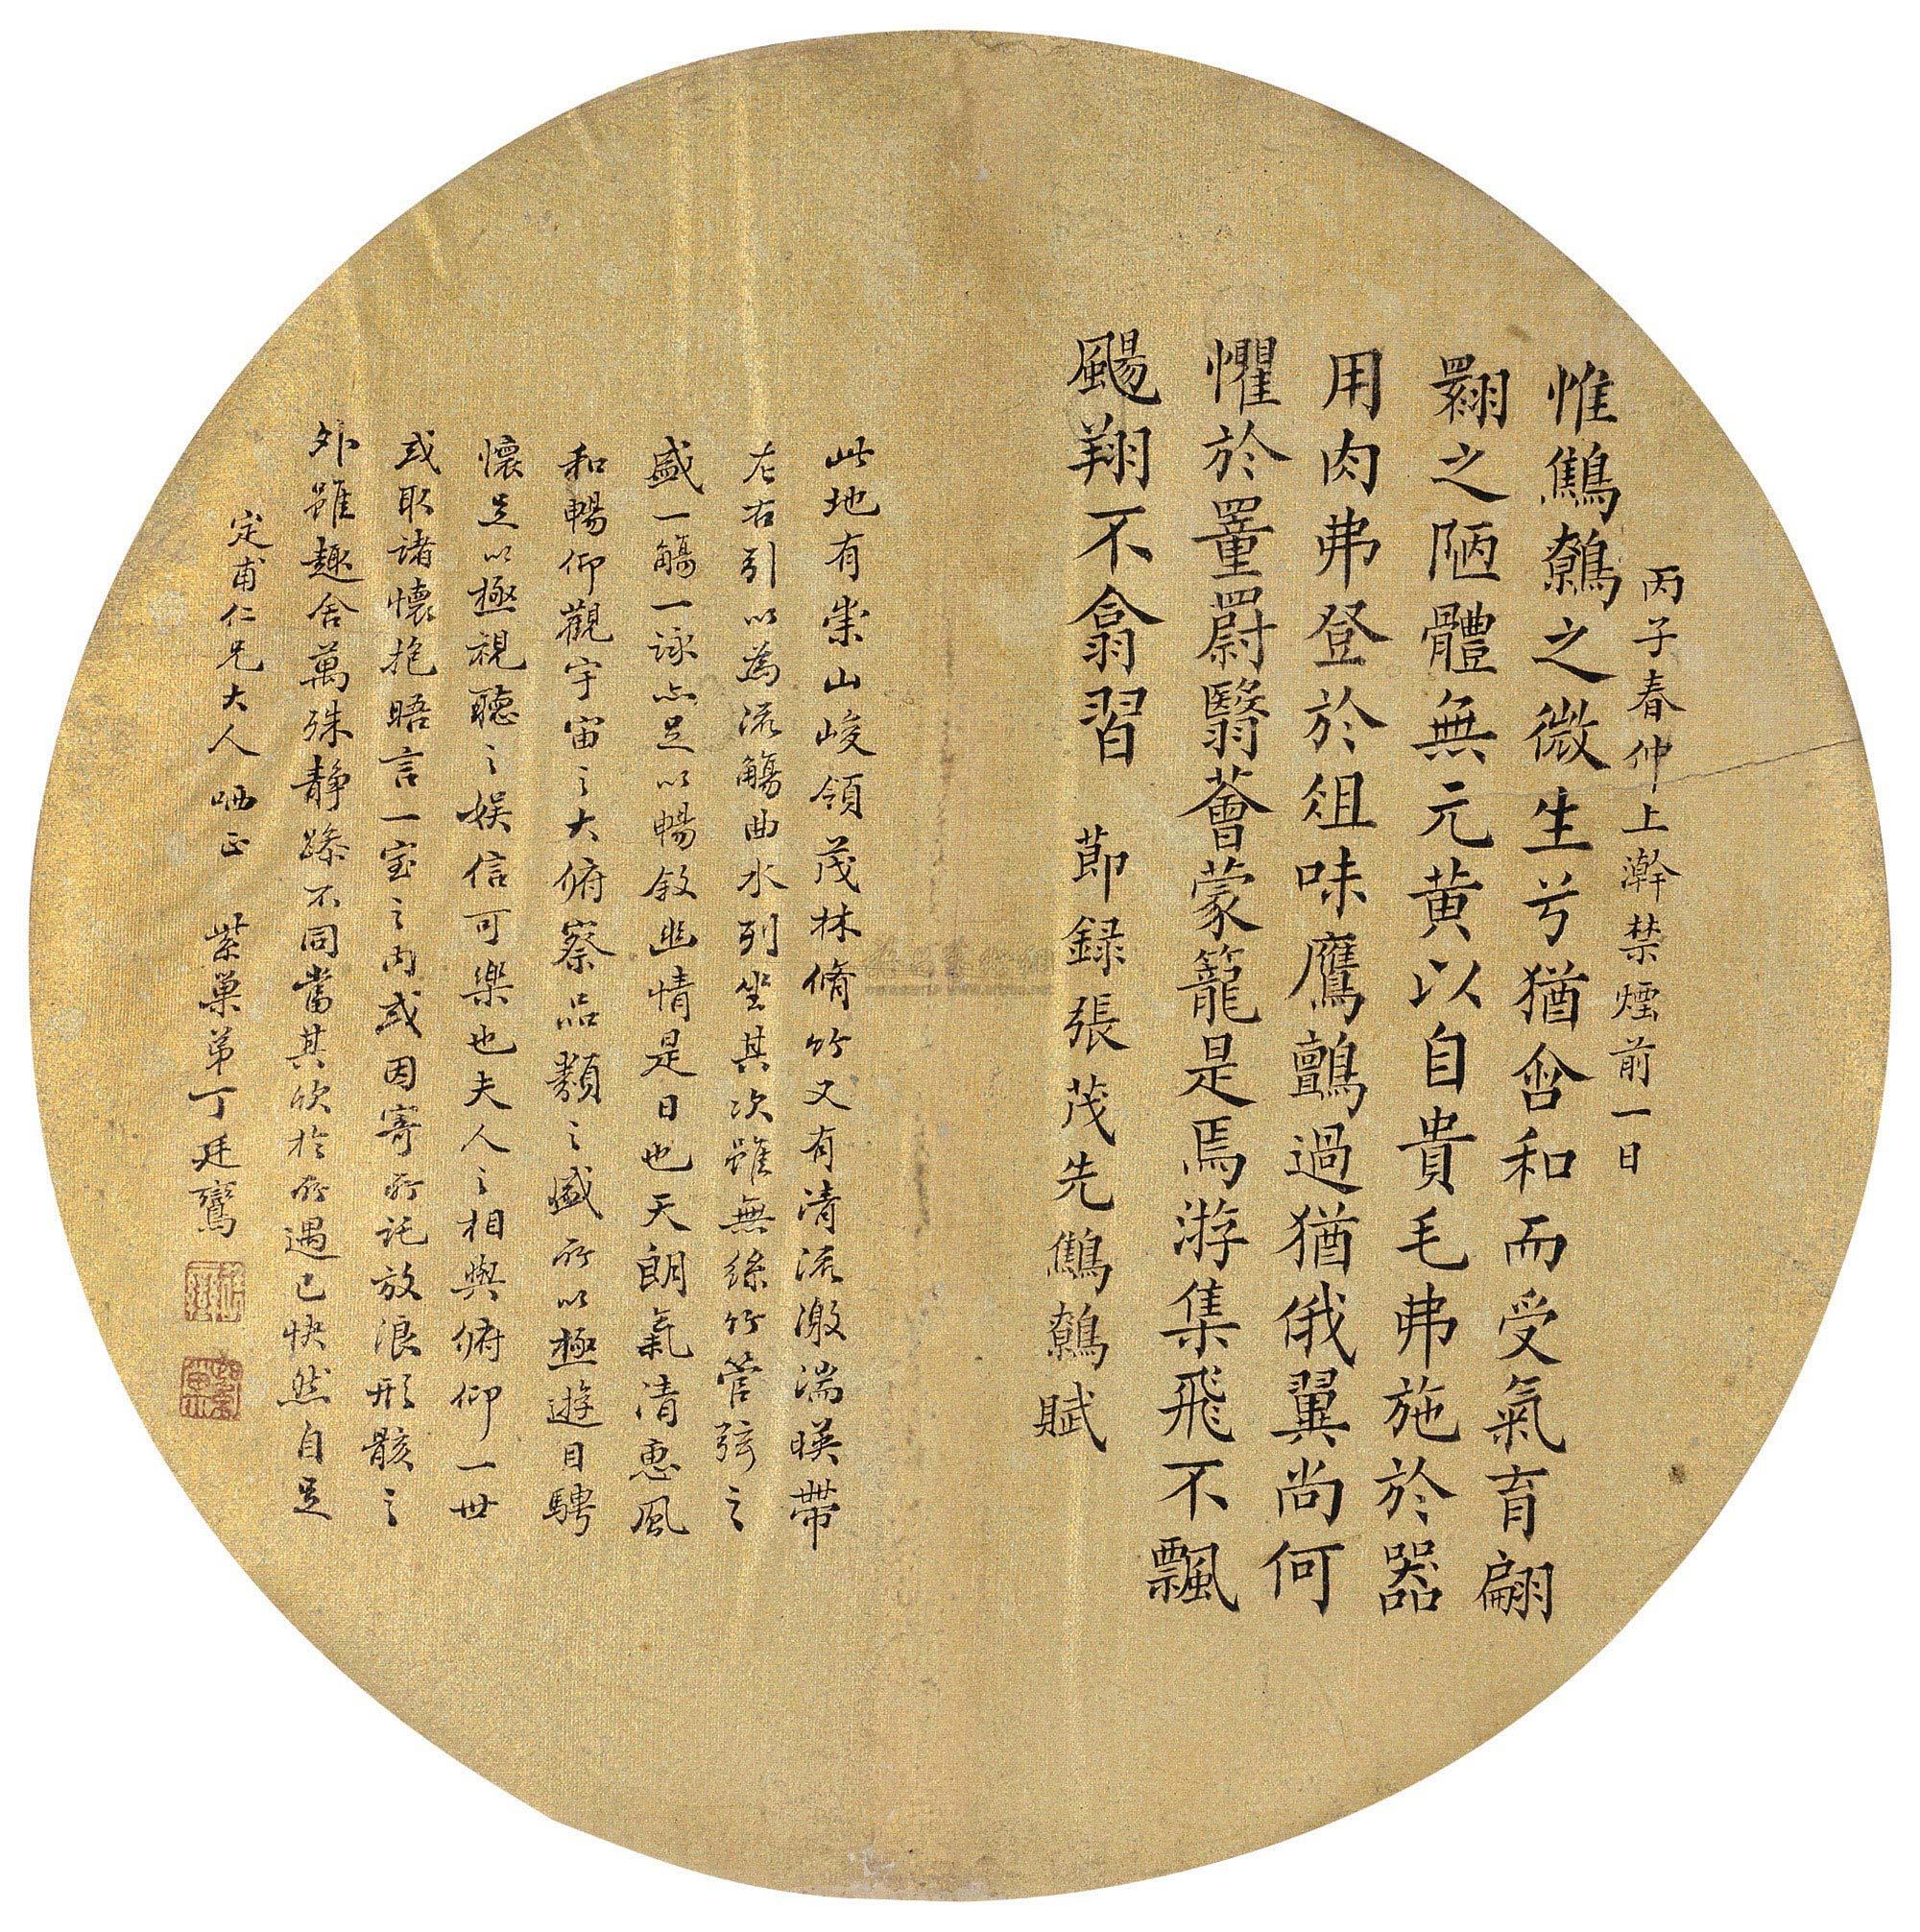 丙子春仲上澣禁煙前一日
惟鷦鷯之微生兮猶含和而受氣育翩
翾之陋體無元黄以自貴毛弗施於器
用肉弗登於俎味鷹鸇過猶俄翼尚何
懼於罿罻翳薈蒙籠是焉游集飛不飄
颺翔不翕習 莭録張茂先鷦鷯賦
此地有崇山峻領茂林脩竹又有清流激湍暎帶
左右引以為流觴曲水列坐其次雖無絲竹管弦之
盛一觴一詠亦足以暢敘幽情是日也天朗氣清惠風
和暢仰觀宇宙之大俯察品類之盛所以極遊目騁
懷足以極視聽之娱信可樂也夫人之相與俯仰一世
或取諸懷抱晤言一室之内或因寄所託放浪形骸之
外雖趣舍萬殊静躁不同當其欣於所遇已快然自足
定甫仁兄大人哂正 紫巢弟丁廷鸞